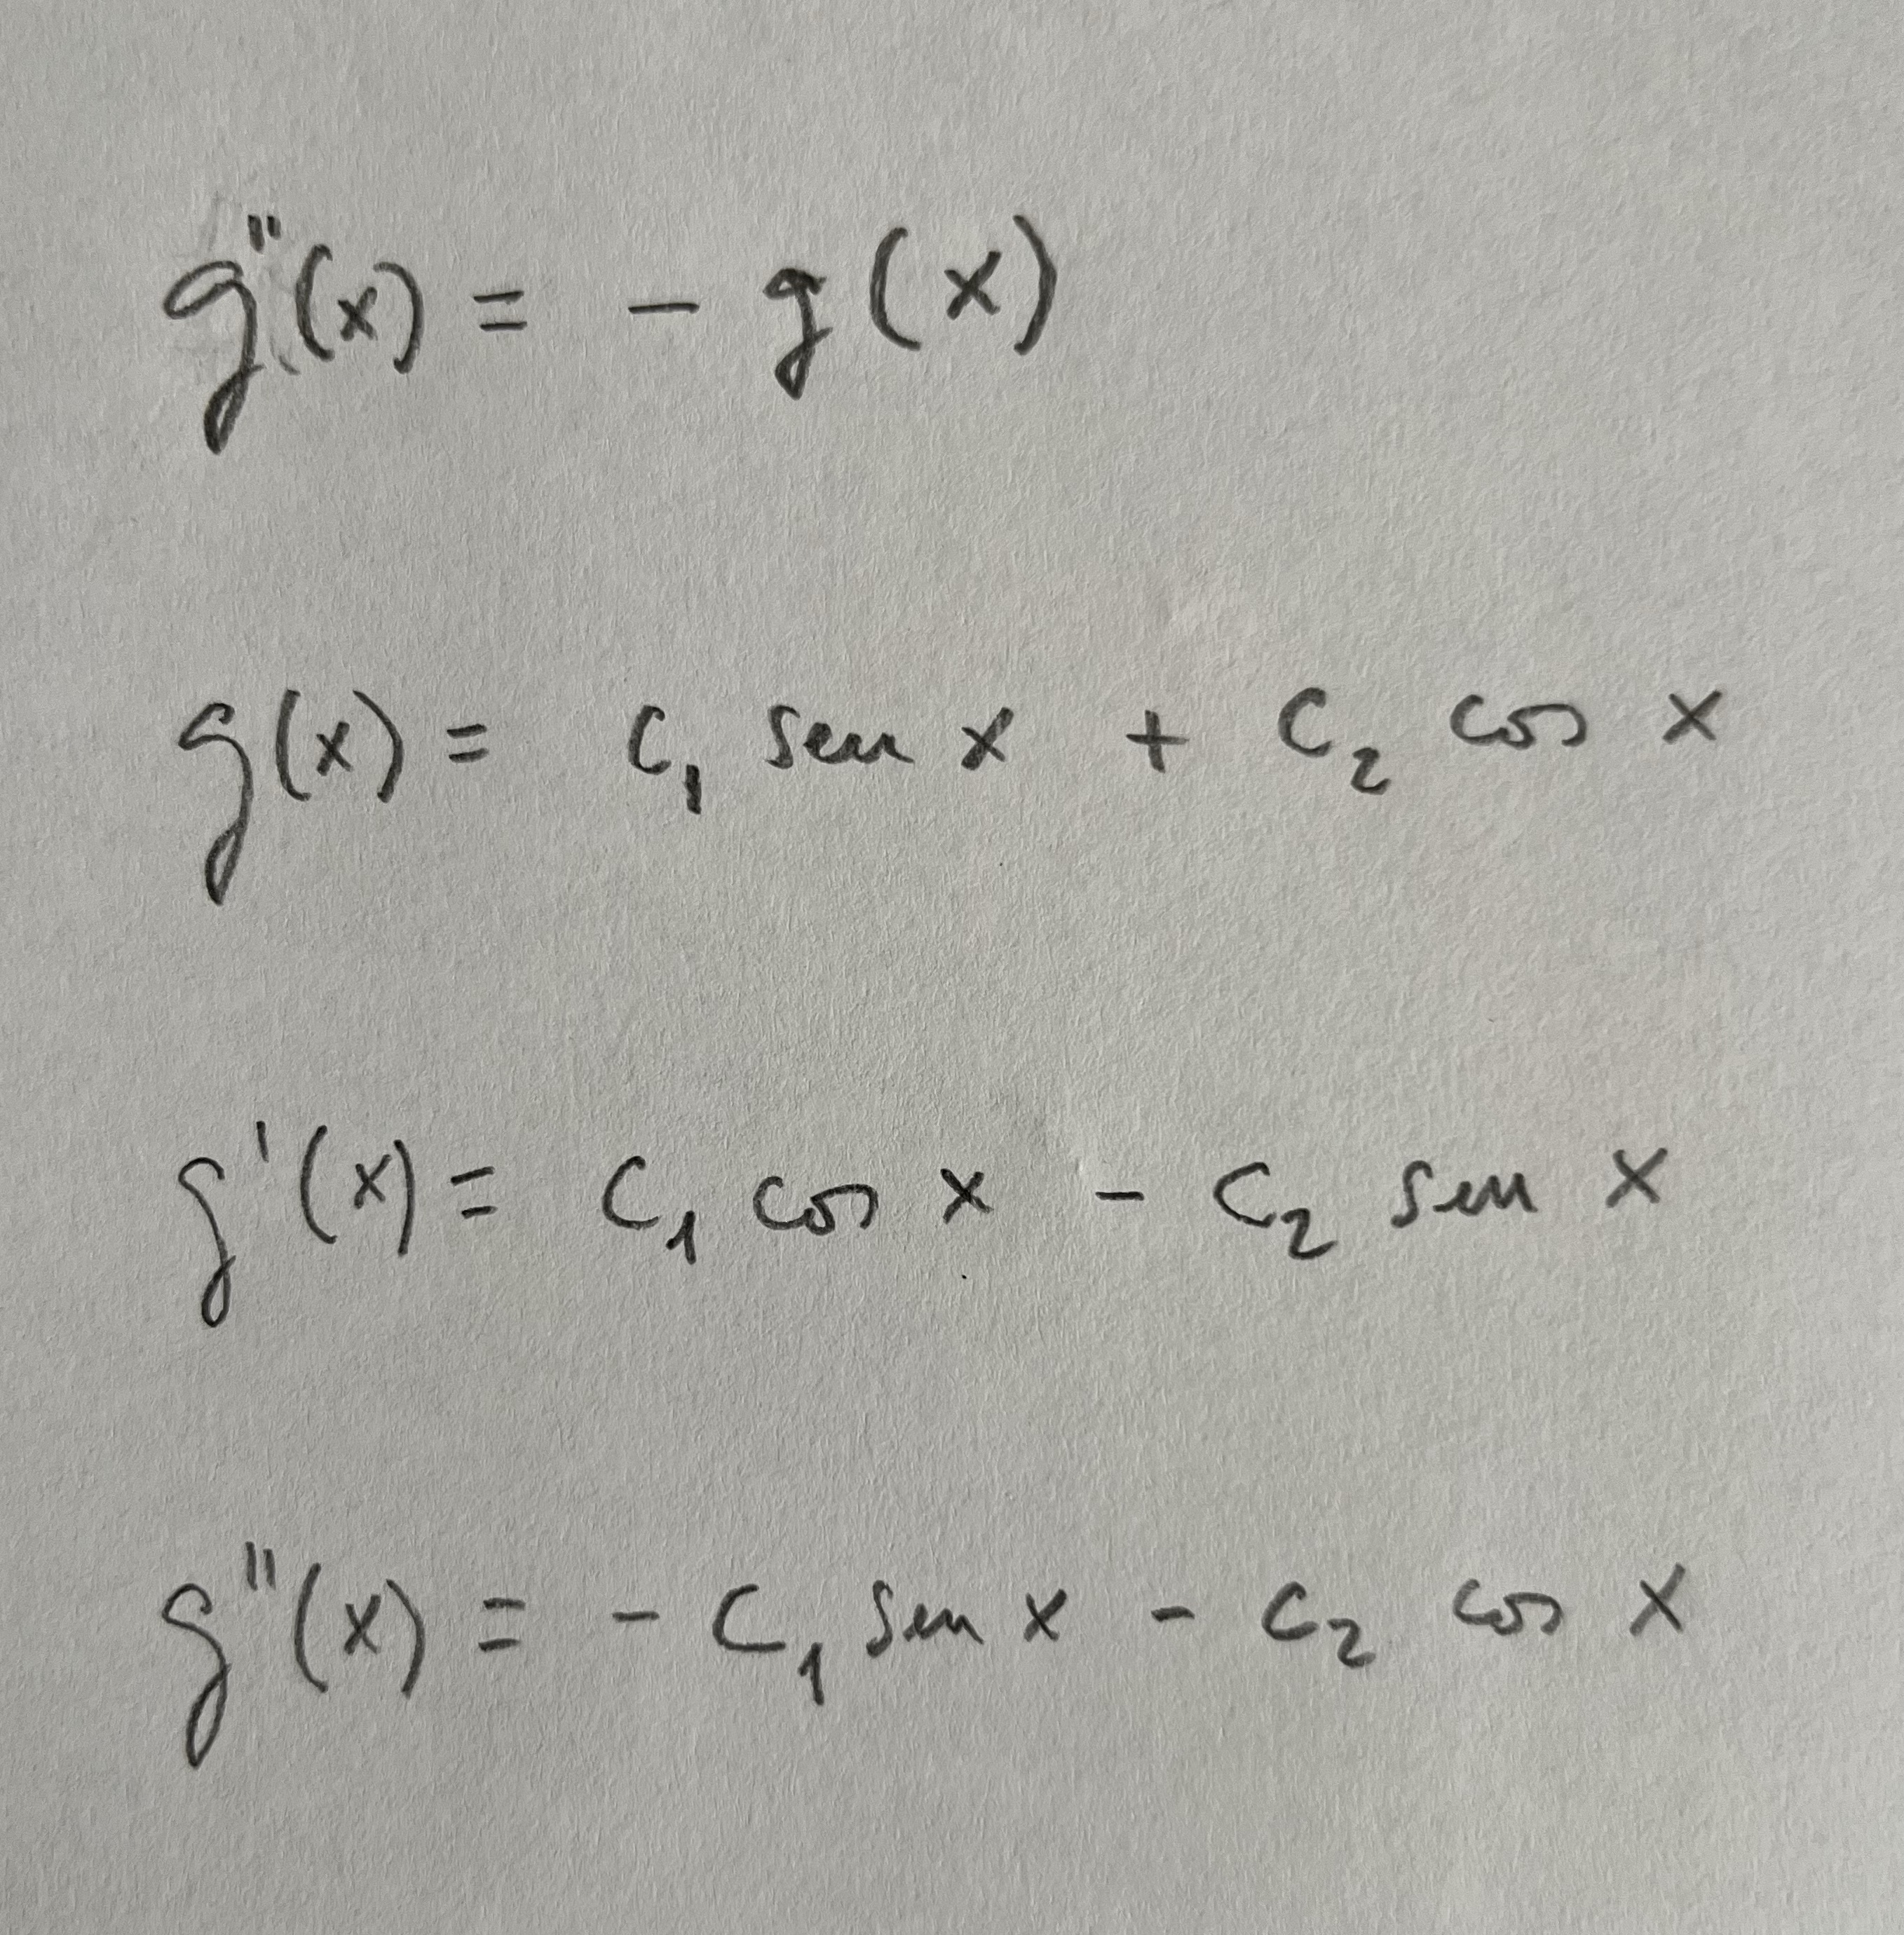 g''(x) = - g(x)
g(x) = c₁ sen x + c₂ cos x
g'(x) = c₁ cos x - c₂ sen x
g''(x) = - c₁ sen x - c₂ cos x